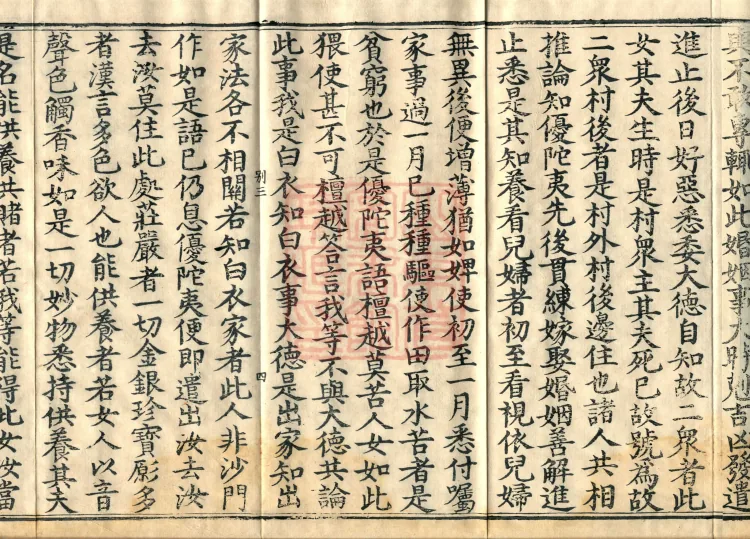 進止後日好惡悉委大德自知故二衆者此
女其夫生時是村衆主其夫死已故號爲故
二衆村後者是村外村後邊住也諸人共相
推論知優陀夷先後貫練嫁娶婚姻善解進
止悉是其知養看兒婦者初至看視依兒婦
無異後便增薄猶如婢使初至一月悉付囑
家事過一月已種種驅使作田取水苦者是
貧窮也於是優陀夷語檀越莫苦人女如此
猥使甚不可檀越答言我等不與大德共論
此事我是白衣知白衣事大德是出家知出
別三
四
家法各不相關若知白衣家者此人非沙門
作如是語已仍息優陀夷便即遣出汝去汝
去汝莫住此處莊嚴者一切金銀珍寶彫多
者漢言多色欲人也能供養者若女人以音
聲色觸香味如是一切妙物悉持供養其夫
是名能供養共賭者若我等能得此女汝當